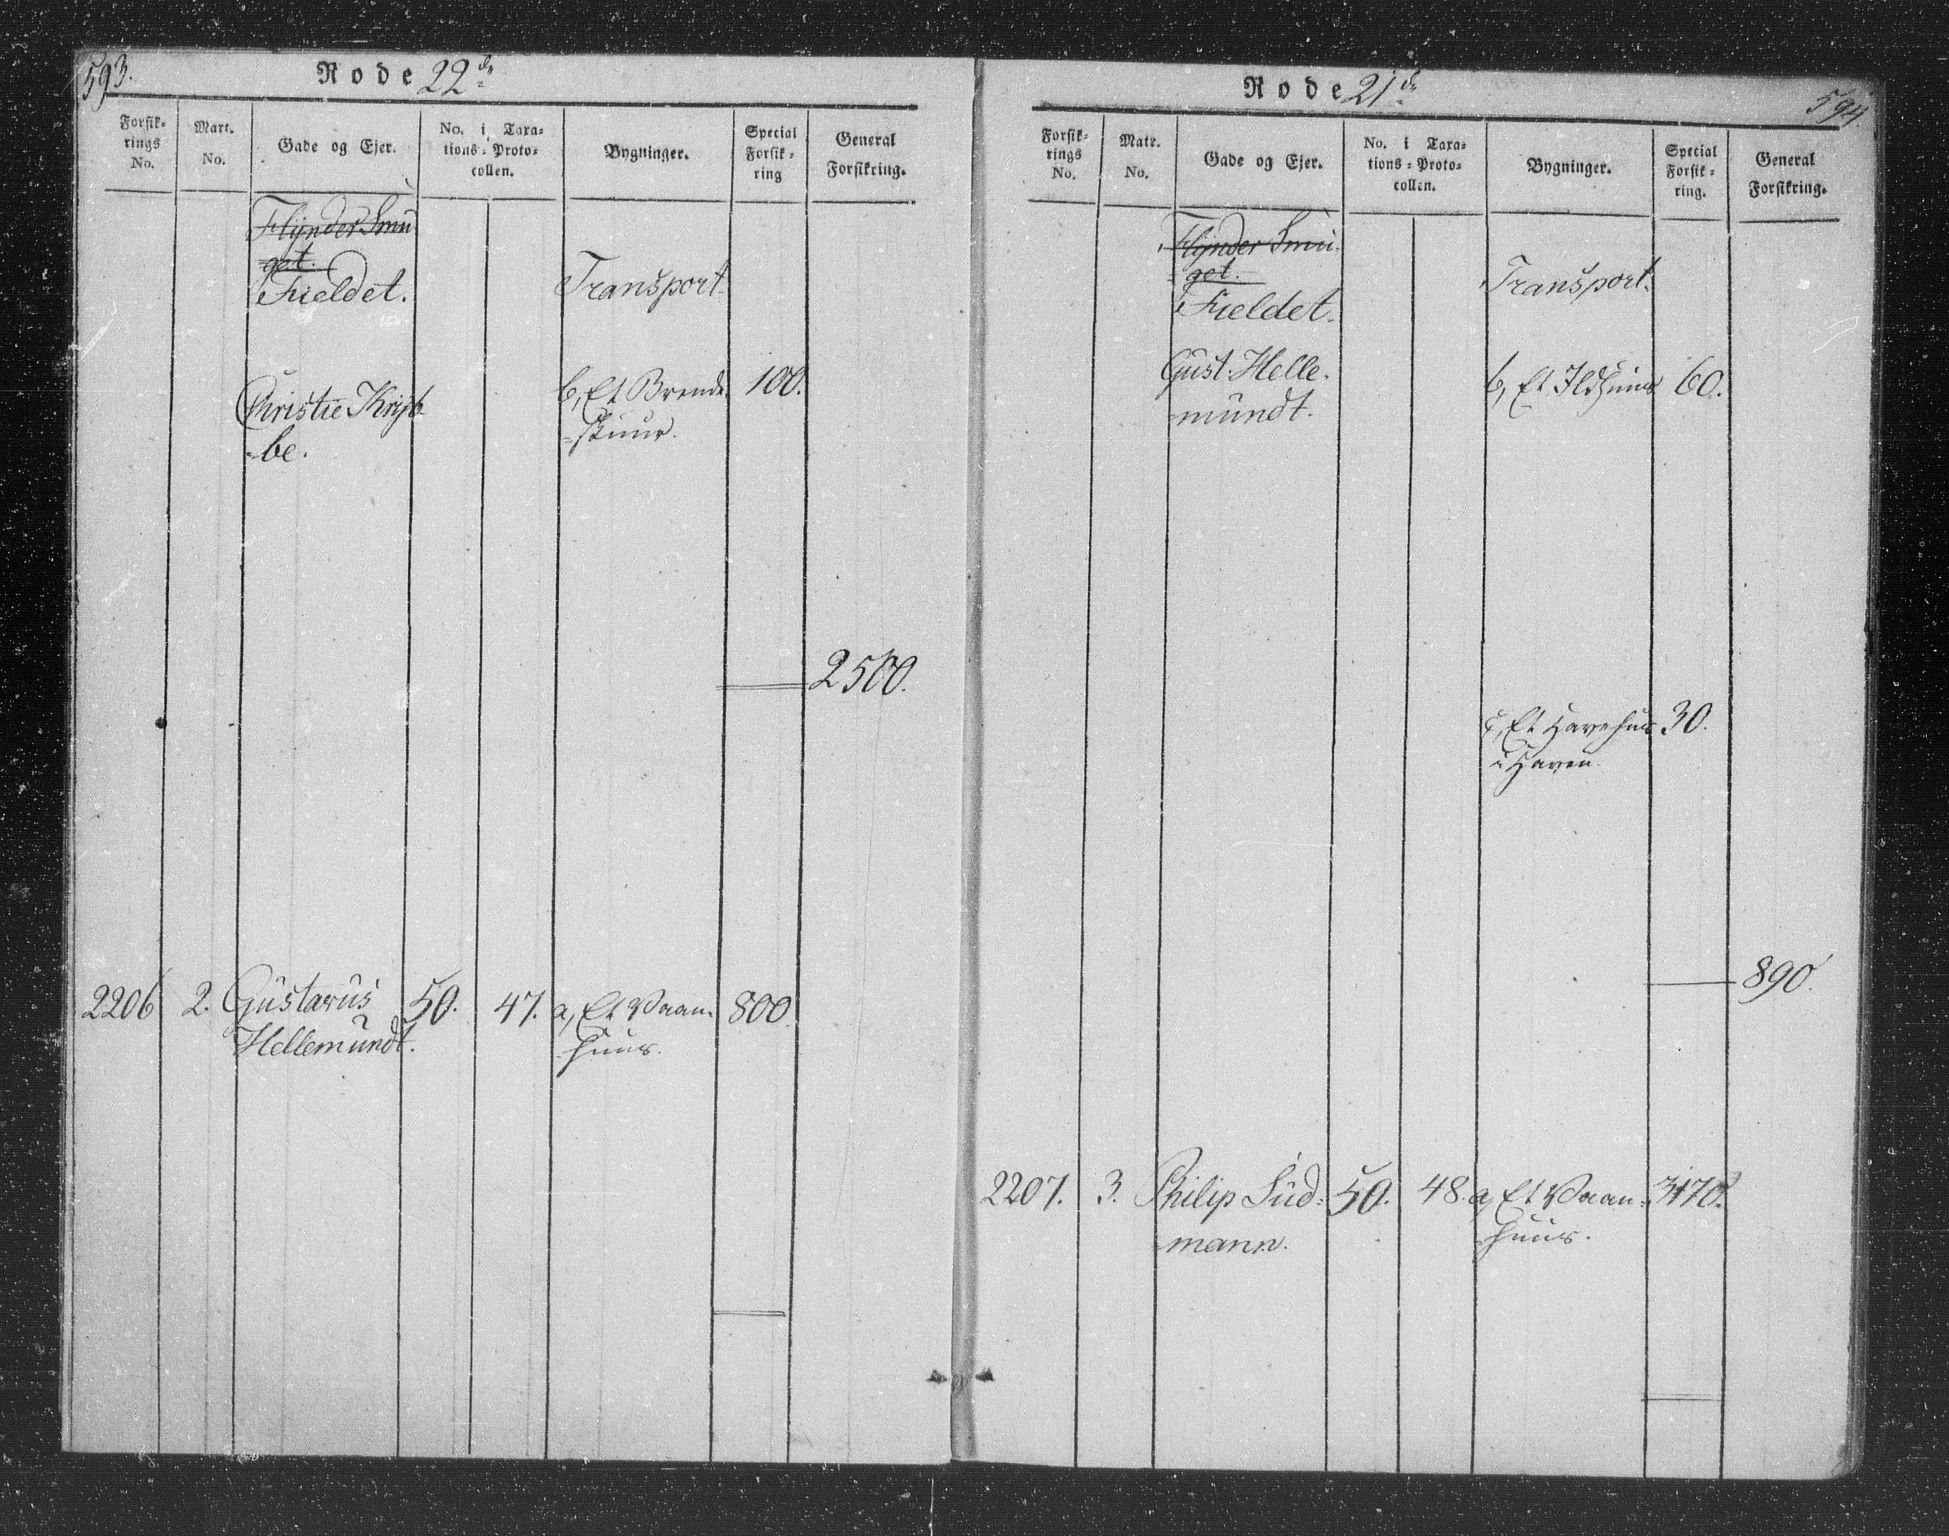 593.
Rode 22de
Forsik-
rings
No.
Mart.
No.
Gade og Ejer.
No. i Taxa-
tions-Proto-
collen.
Bygninger.
Special
Forsik-
ring
General
Forsikring.
Flynder Smu
get.
Fieldet.
Transport
Christie Kryb
be.
b, Et Brende
skuur.
100.
2500.
2206 2. Gustavus 50. 47. a, Et Vaan- 800
Hellemundt. huus.
Rode 21de
594.
Forsik-
rings
No.
Matr.
No.
Gade og Ejer.
No. i Taxa-
tions-Proto-
collen.
Bygninger.
Special
Forsik-
ring.
General
Forsikring.
Flynder Smu-
get.
Fieldet.
Transport.
Gust. Helle-
mundt.
b, Et Ildhuus 60.
c, Et Havehuus 30.
i Haven.
890.
2207. 3. Philip Lüd- 50. 48. a, Et Vaan-
mann. huus.